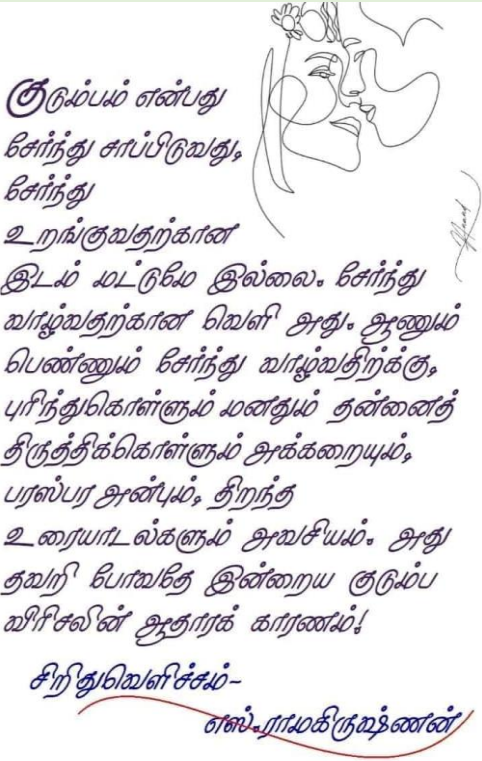 குடும்பம் என்பது
சேர்ந்து சாப்பிடுவது,
சேர்ந்து
உறங்குவதற்கான
இடம் மட்டுமே இல்லை. சேர்ந்து
வாழ்வதற்கான வெளி அது. ஆணும்
பெண்ணும் சேர்ந்து வாழ்வதிற்க்கு,
புரிந்துகொள்ளும் மனதும் தன்னைத்
திருத்திக்கொள்ளும் அக்கறையும்,
பரஸ்பர அன்பும், திறந்த
உரையாடல்களும் அவசியம். அது
தவறி போவதே இன்றைய குடும்ப
விரிசலின் ஆதாரக் காரணம்!
சிறிதுவெளிச்சம்-
எஸ்.ராமகிருஷ்ணன்